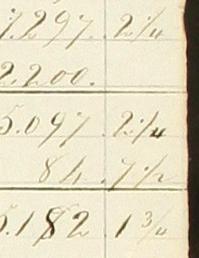 7.297. 2 1/4
2.200.
5.097. 2 1/4
84. 7 1/2
5.182. 1 3/4